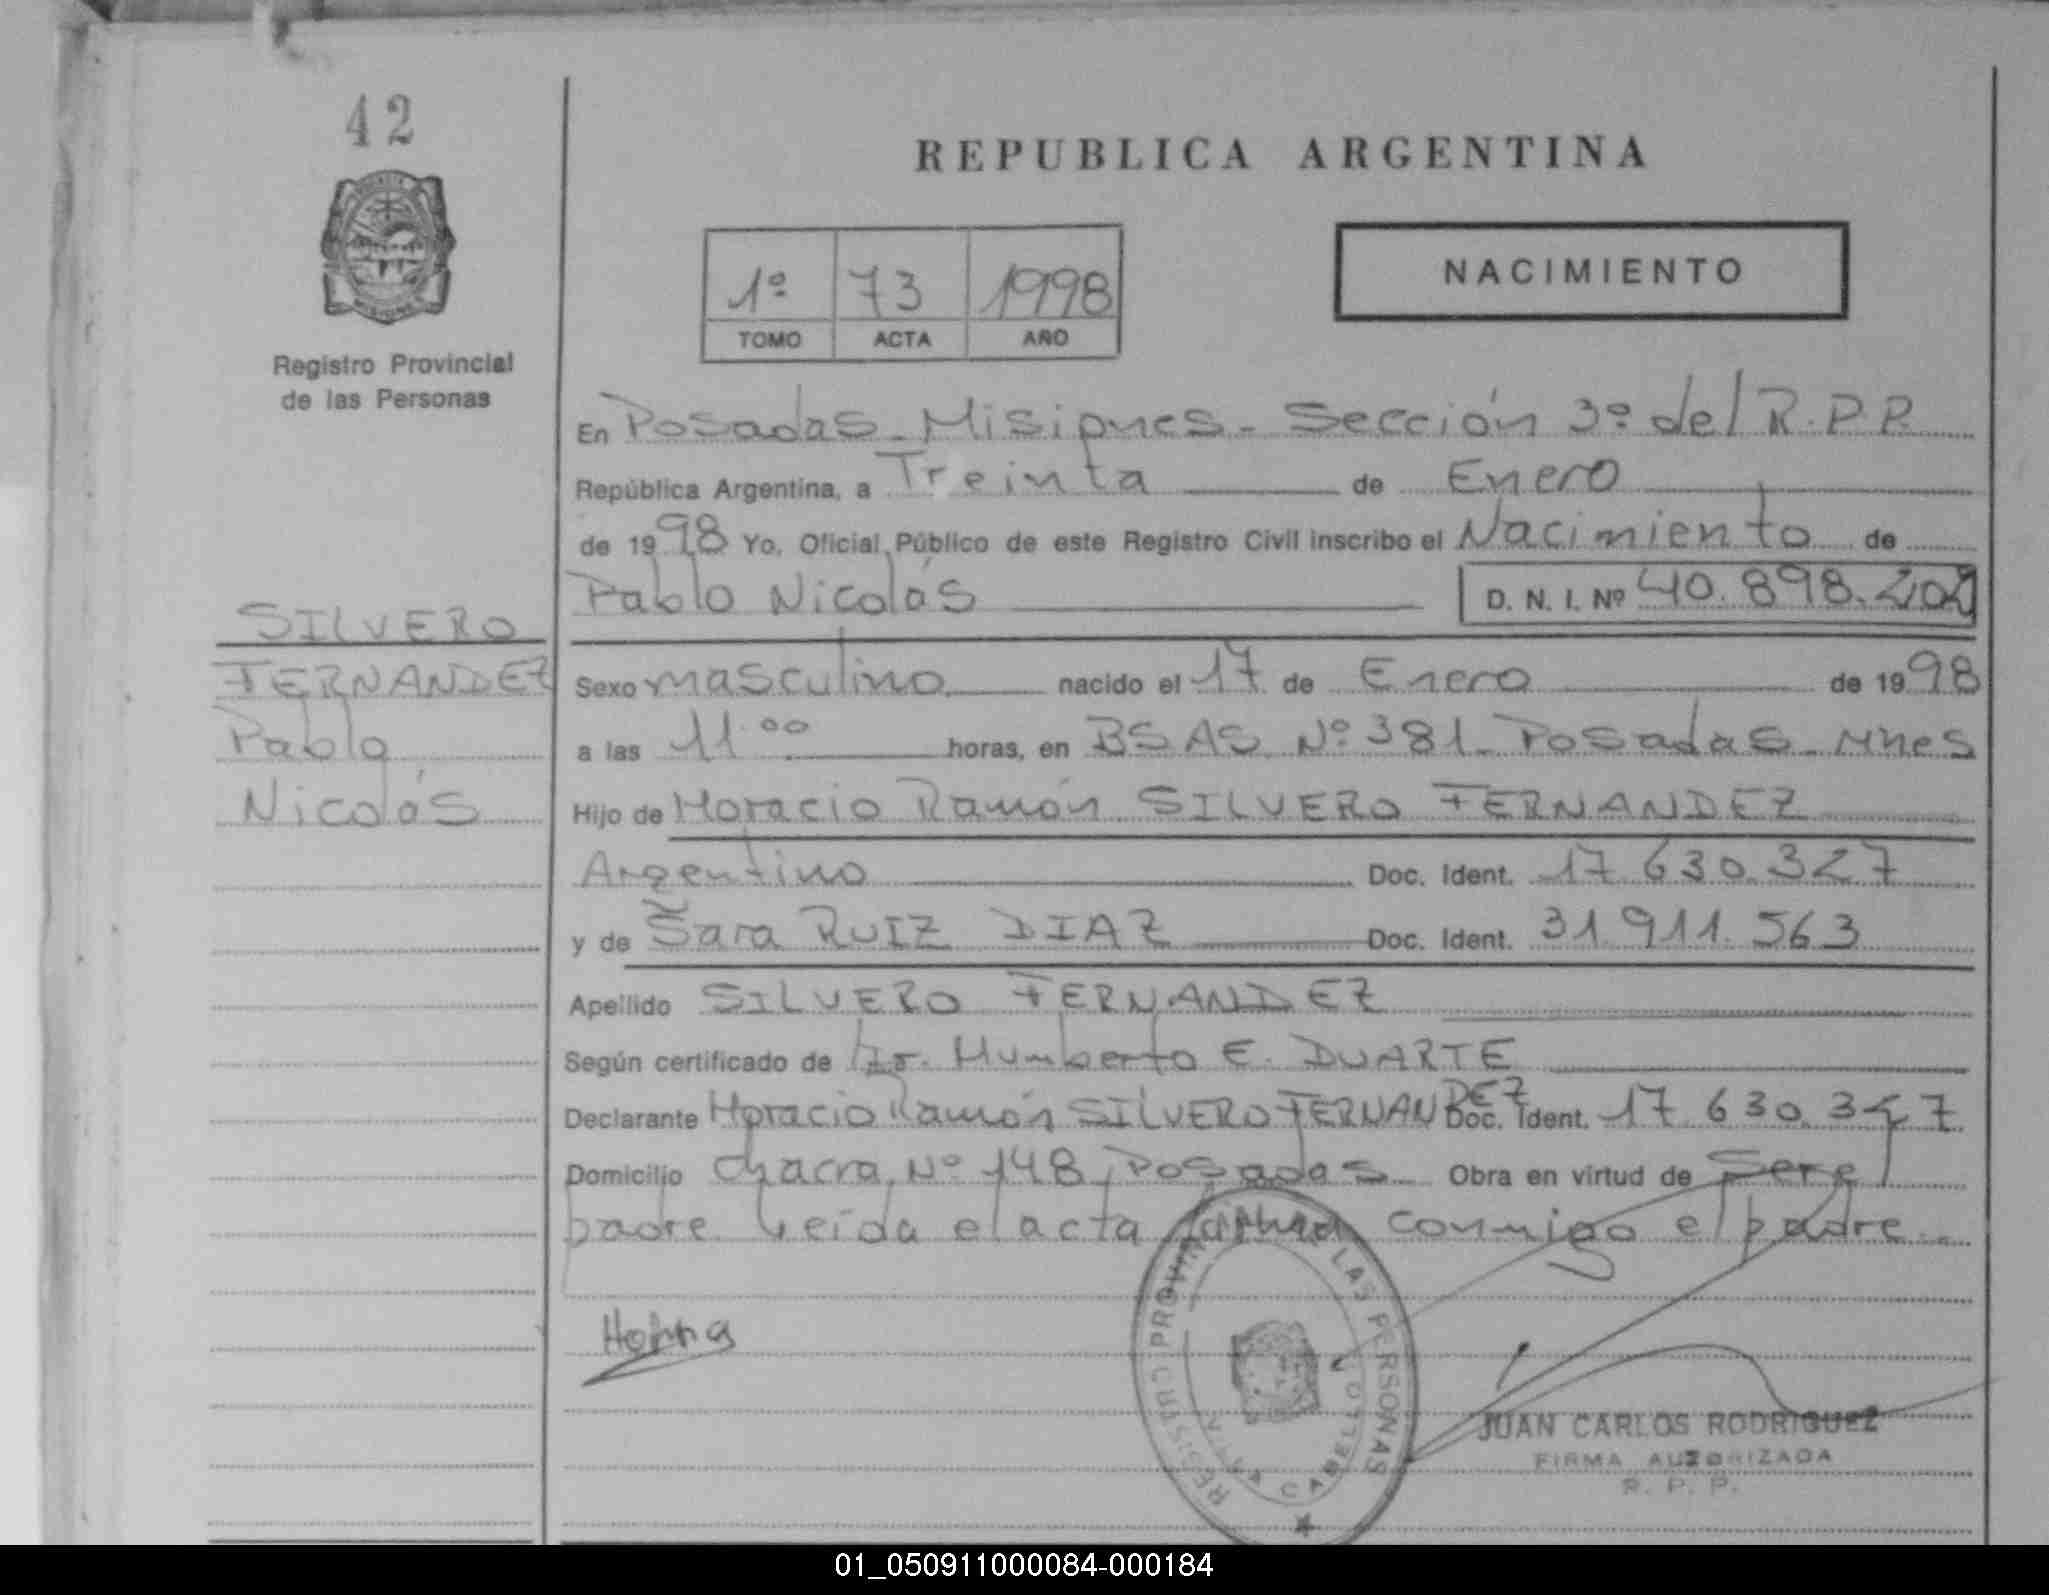 42
REPUBLICA ARGENTINA
1º 73 1998
TOMO ACTA AÑO
NACIMIENTO
Registro Provincial
de las Personas
En Posadas - Misiones - Sección 3º del R.P.P.
República Argentina, a Treinta de Enero
de 1998 Yo, Oficial Público de este Registro Civil inscribo el Nacimiento de
Pablo Nicolás D. N. I. Nº 40.898.202
SILVERO
FERNANDEZ
Pablo
Nicolás
Sexo masculino nacido el 17 de Enero de 1998
a las 11.00 horas, en BSAS Nº 381 - Posadas - Mnes
Hijo de Horacio Ramón SILVERO FERNANDEZ
Argentino Doc. Ident. 17.630.327
y de Sara RUIZ DIAZ Doc. Ident. 31.911.563
Apellido SILVERO FERNANDEZ
Según certificado de Dr. Humberto E. DUARTE
Declarante Horacio Ramón SILVERO FERNANDEZ Doc. Ident. 17.630.327
Domicilio Chacra Nº 148 Posadas Obra en virtud de Ser el
padre. Leída el acta firma conmigo el padre..
REGISTRO PROVINCIAL DE LAS PERSONAS
VILLA CABELLO
JUAN CARLOS RODRIGUEZ
FIRMA AUTORIZADA
R. P. P.
01_050911000084-000184